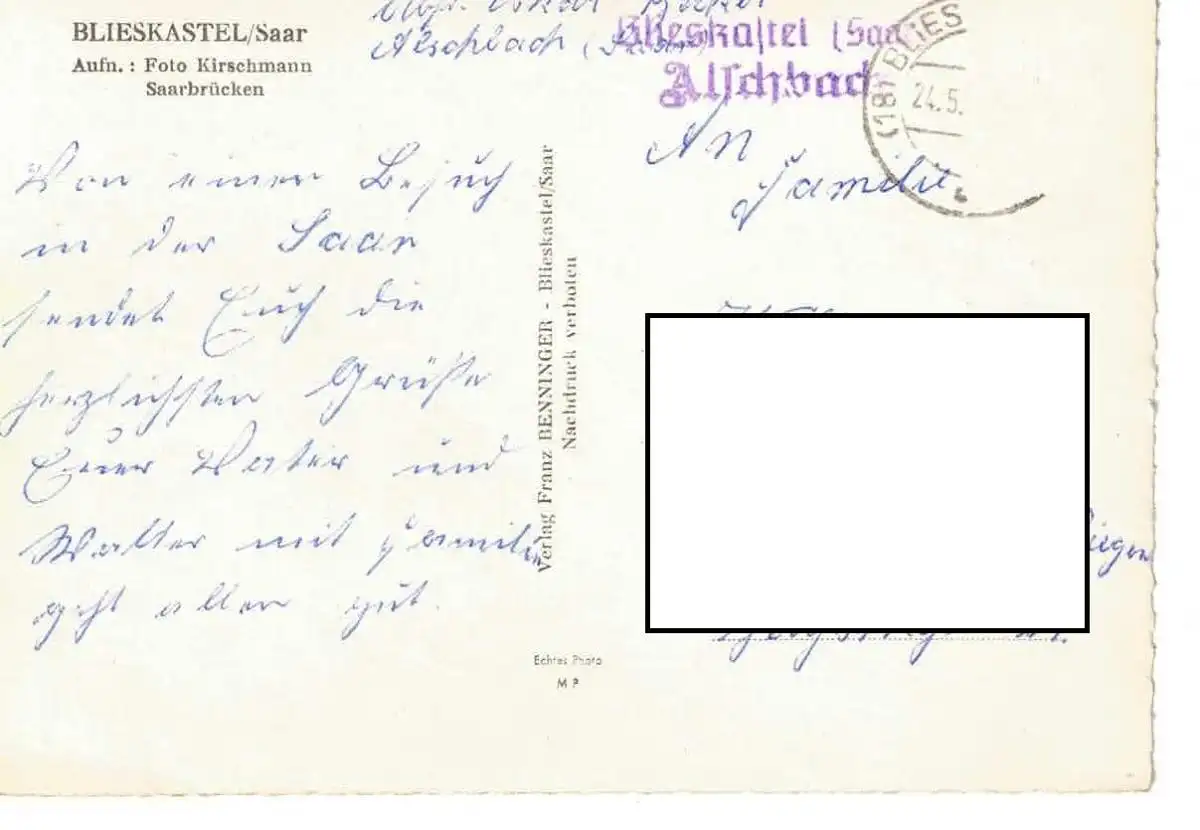 BLIESKASTEL/Saar
Aufn.: Foto Kirschmann
Saarbrücken
Alschbach (Saar)
Blieskastel (Saa
Alschbach
(18) BLIES
24.5.
Von einem Besuch
in der Saar
sendet Euch die
herzlichsten Grüße
Euer Vater und
Walter mit Familie
geht allen gut.
Verlag Franz BENNINGER - Blieskastel/Saar
Nachdruck verboten
An
Familie
Echtes Photo
M P